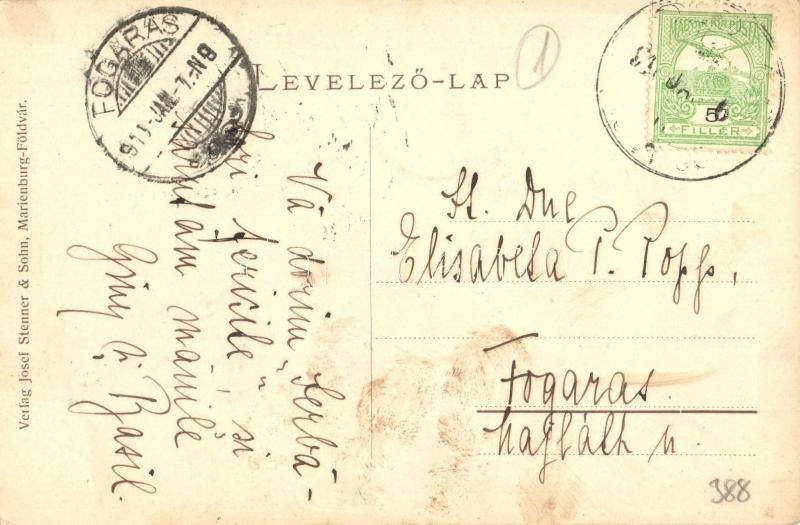 LEVELEZŐ-LAP
FOGARAS
911 JAN. 7. N8
MAGYAR KIR. POSTA
5
FILLÉR
1
Verlag Josef Stenner & Sohn, Marienburg-Földvár.
Vă dorim „Serbă-
ri fericite", si
sărutăm mânile
Giny și Vasil.
St. Dne
Elisabeta P. Popp,
Fogaras.
388